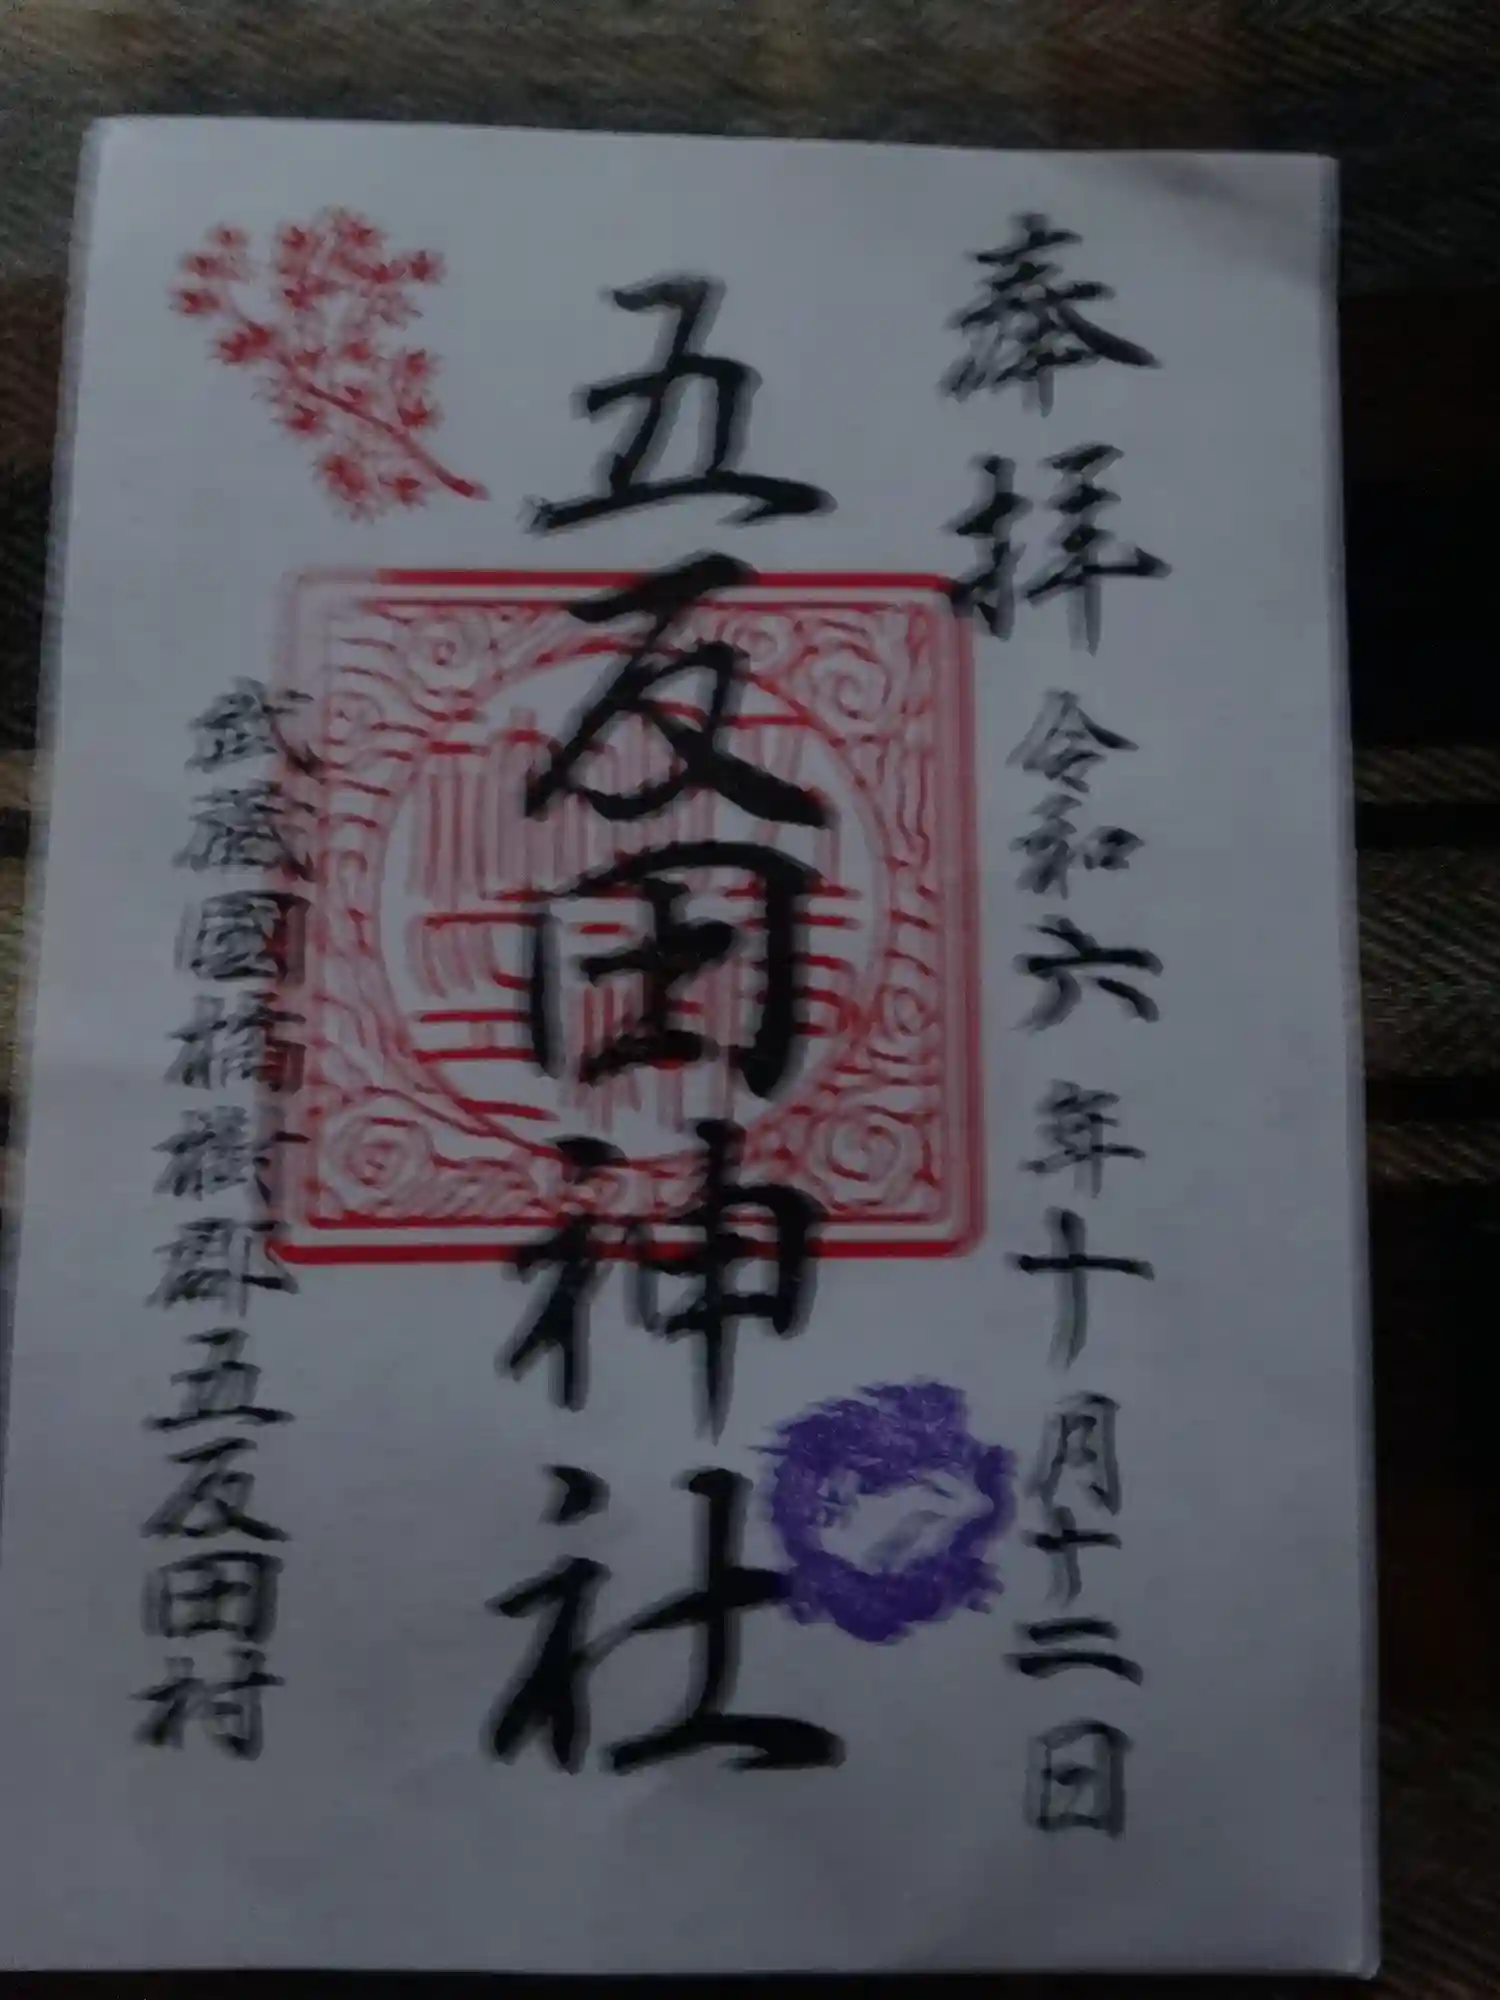 奉拝 令和六年十月十二日
五反田神社
武蔵國橘樹郡五反田村